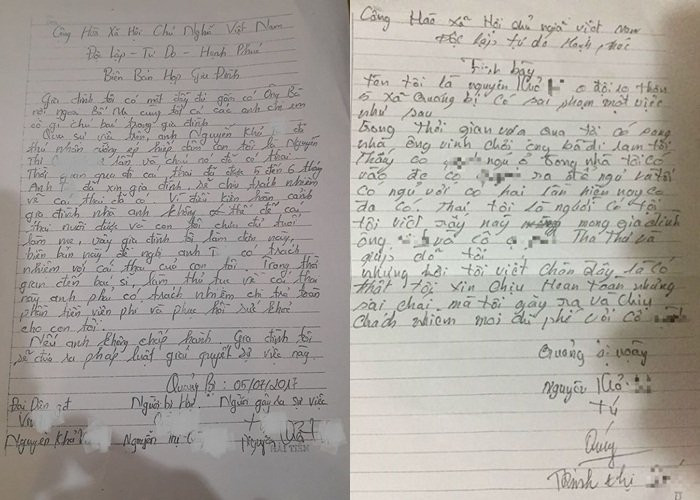 Cộng Hoà Xã Hội Chủ Nghĩa Việt Nam
Độc lập - Tự Do - Hạnh Phúc
Biên Bản Họp Gia Đình
Gia đình tôi có mặt đầy đủ gồm có Ông Bà
nội ngoại Bố Mẹ cùng tất cả các anh chị em
cô dì chú bác trong gia đình
anh Nguyễn Khả đã
thú nhận cưỡng ép hiếp dâm con tôi là Nguyễn
Thị lần và cháu nó đã có thai
Thời gian qua đã cái thai đã được 5 đến 6 tháng
Anh T đã xin gia đình sẽ chịu trách nhiệm
về cái thai đó. Vì điều kiện hoàn cảnh
gia đình nhà anh không thể để cái
thai nuôi được và con tôi chưa đủ tuổi
làm mẹ, vậy gia đình tôi làm đơn này,
biên bản này đề nghị anh T có trách
nhiệm với cái thai của con tôi. Trong thời
gian đến bác sĩ, làm thủ tục về cái thai
này anh phải có trách nhiệm chi trả toàn
phần tiền viện phí và phục hồi sức khoẻ
cho con tôi.
Nếu anh không chấp hành. Gia đình tôi
sẽ đưa ra pháp luật giải quyết sự việc này
05/07/2017
Đại Diện Người bị hại. Người gây ra sự việc
Nguyễn Khả Nguyễn Thị Nguyễn
HẢI TIẾN
Cộng Hoà Xã Hội chủ nghĩa việt Nam
Độc lập tự do Hạnh phúc
Trình bày
Tên tôi là nguyễn Khả ở đội 10 thôn
5 xã Quảng bị có sai phạm một việc
như sau
trong thời gian vừa qua tôi có sang
nhà ông vinh chơi ông bà đi làm tôi
Thấy cô ngủ ở trong nhà tôi có
vào để cô ra để ngủ và tôi
có ngủ với cô hai lần hiện nay cô
đã có. Thai tôi là người có tội
tôi viết giấy này mong gia đình
ông và cô Tha Thứ và
giúp đỡ tôi
những lời tôi viết Chân đây, là có
thật tôi xin Chịu Hoàn toàn những
sai chái mà tôi gây ra và chịu
Chách nhiệm mọi chi phí với cô
nguyễn Khả
Tú
Quý
Trịnh thị